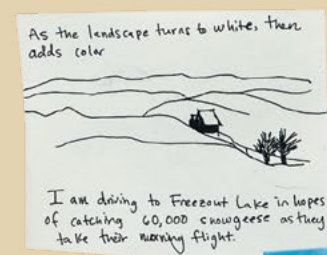 As the landscape turns to white, then
adds color
I am driving to Freezout Lake in hopes
of catching 60,000 snowgeese as they
take their morning flight.